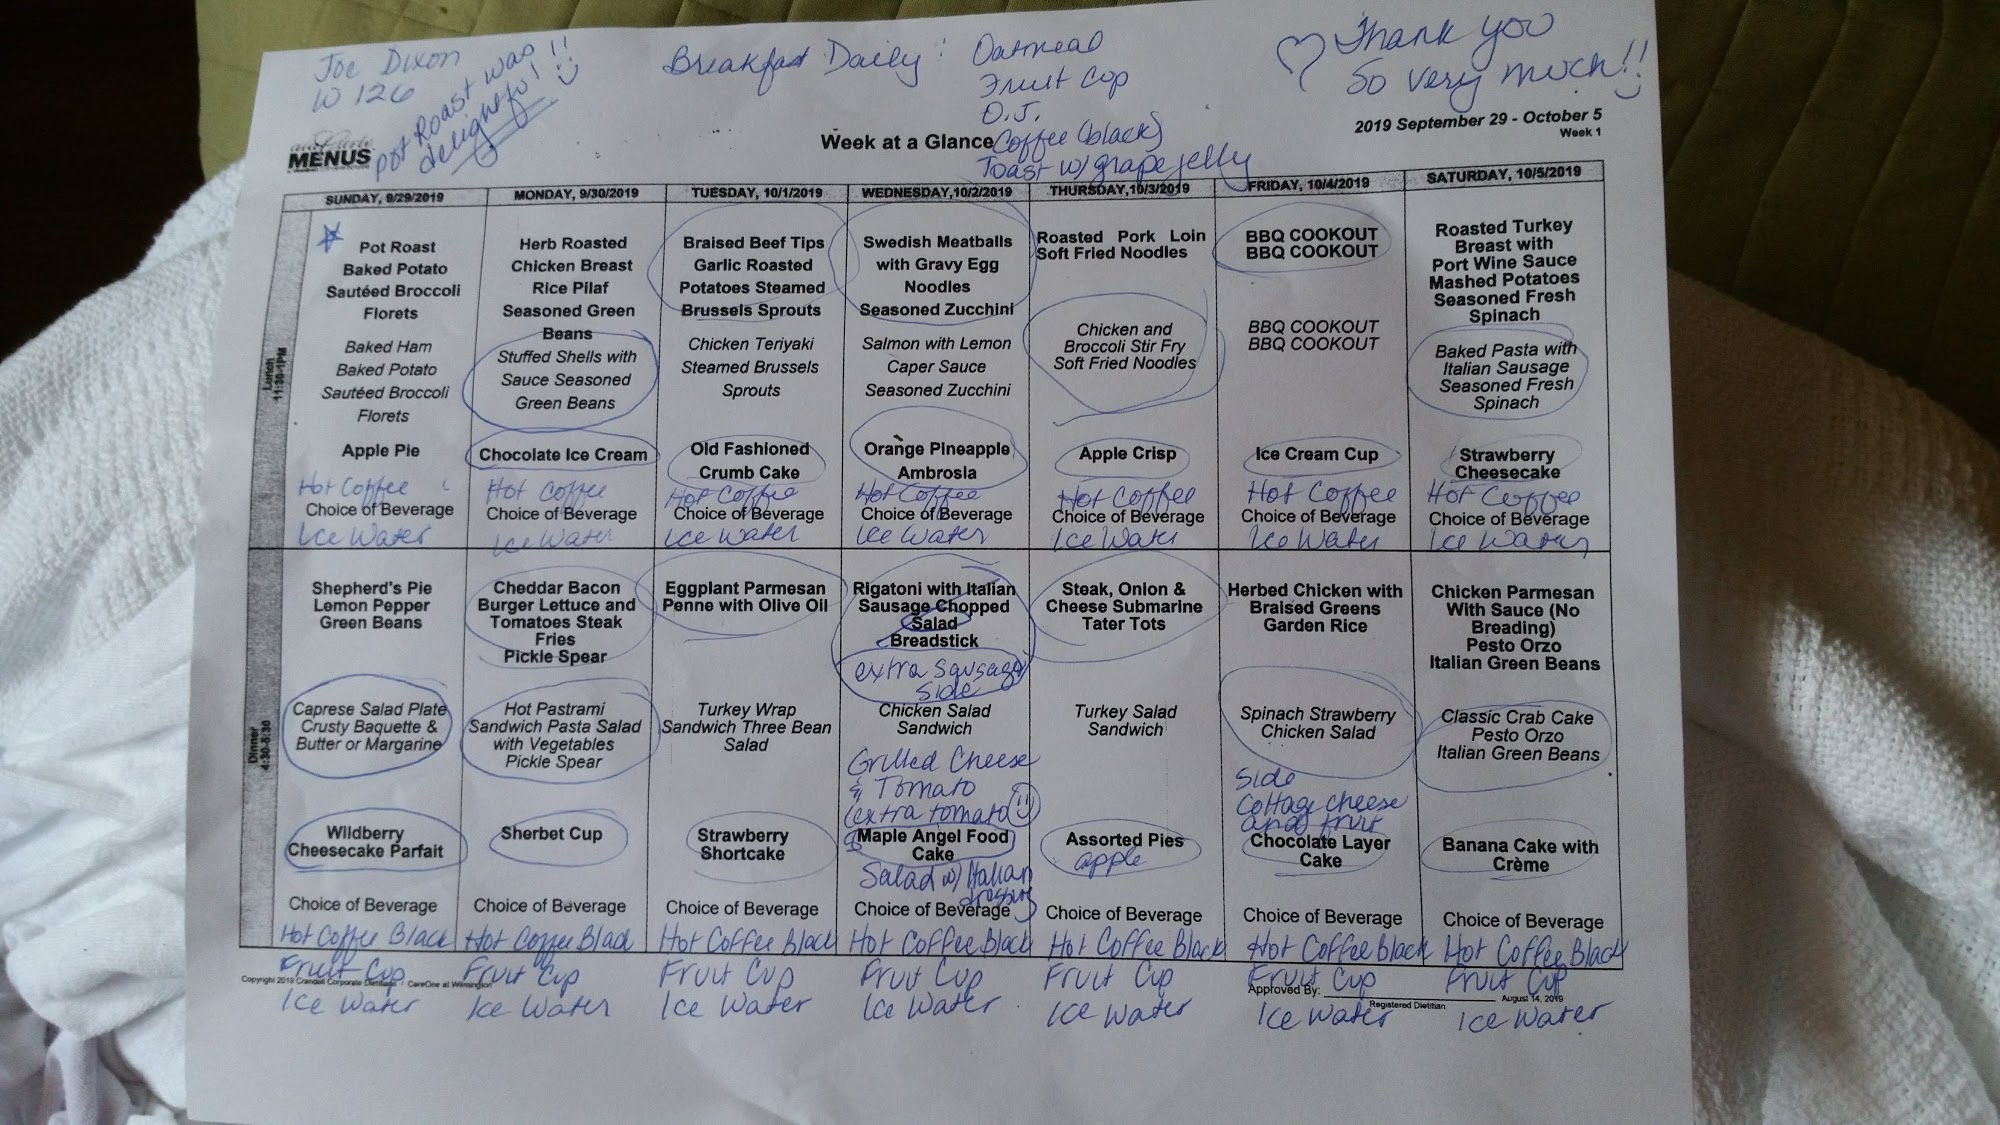 Joe Dixon
W 126
Pot Roast was
delightful!!
Breakfast Daily: Oatmeal
Fruit Cup
O.J.
Coffee (black)
Toast w/ grape jelly
Thank you
So very much!!
MENUS
Week at a Glance
2019 September 29 - October 5
Week 1
SUNDAY, 9/29/2019
MONDAY, 9/30/2019
TUESDAY, 10/1/2019
WEDNESDAY, 10/2/2019
THURSDAY, 10/3/2019
FRIDAY, 10/4/2019
SATURDAY, 10/5/2019
Lunch
11:30-1PM
Pot Roast
Baked Potato
Sautéed Broccoli
Florets
Baked Ham
Baked Potato
Sautéed Broccoli
Florets
Apple Pie
Hot Coffee
Choice of Beverage
Ice Water
Herb Roasted
Chicken Breast
Rice Pilaf
Seasoned Green
Beans
Stuffed Shells with
Sauce Seasoned
Green Beans
Chocolate Ice Cream
Hot Coffee
Choice of Beverage
Ice Water
Braised Beef Tips
Garlic Roasted
Potatoes Steamed
Brussels Sprouts
Chicken Teriyaki
Steamed Brussels
Sprouts
Old Fashioned
Crumb Cake
Hot Coffee
Choice of Beverage
Ice Water
Swedish Meatballs
with Gravy Egg
Noodles
Seasoned Zucchini
Salmon with Lemon
Caper Sauce
Seasoned Zucchini
Orange Pineapple
Ambrosia
Hot Coffee
Choice of Beverage
Ice Water
Roasted Pork Loin
Soft Fried Noodles
Chicken and
Broccoli Stir Fry
Soft Fried Noodles
Apple Crisp
Hot Coffee
Choice of Beverage
Ice Water
BBQ COOKOUT
BBQ COOKOUT
BBQ COOKOUT
BBQ COOKOUT
Ice Cream Cup
Hot Coffee
Choice of Beverage
Ice Water
Roasted Turkey
Breast with
Port Wine Sauce
Mashed Potatoes
Seasoned Fresh
Spinach
Baked Pasta with
Italian Sausage
Seasoned Fresh
Spinach
Strawberry
Cheesecake
Hot Coffee
Choice of Beverage
Ice Water
Dinner
4:30-5:30
Shepherd's Pie
Lemon Pepper
Green Beans
Caprese Salad Plate
Crusty Baquette &
Butter or Margarine
Wildberry
Cheesecake Parfait
Choice of Beverage
Hot Coffee Black
Fruit Cup
Ice Water
Cheddar Bacon
Burger Lettuce and
Tomatoes Steak
Fries
Pickle Spear
Hot Pastrami
Sandwich Pasta Salad
with Vegetables
Pickle Spear
Sherbet Cup
Choice of Beverage
Hot Coffee Black
Fruit Cup
Ice Water
Eggplant Parmesan
Penne with Olive Oil
Turkey Wrap
Sandwich Three Bean
Salad
Strawberry
Shortcake
Choice of Beverage
Hot Coffee Black
Fruit Cup
Ice Water
Rigatoni with Italian
Sausage Chopped
Salad
Breadstick
extra sausage
side
Chicken Salad
Sandwich
Grilled Cheese
& Tomato
(extra tomato !!)
Maple Angel Food
Cake
Salad w/ Italian
dressing
Choice of Beverage
Hot Coffee Black
Fruit Cup
Ice Water
Steak, Onion &
Cheese Submarine
Tater Tots
Turkey Salad
Sandwich
Assorted Pies
apple
Choice of Beverage
Hot Coffee Black
Fruit Cup
Ice Water
Herbed Chicken with
Braised Greens
Garden Rice
Spinach Strawberry
Chicken Salad
Side
Cottage cheese
and fruit
Chocolate Layer
Cake
Choice of Beverage
Hot Coffee Black
Fruit Cup
Ice Water
Chicken Parmesan
With Sauce (No
Breading)
Pesto Orzo
Italian Green Beans
Classic Crab Cake
Pesto Orzo
Italian Green Beans
Banana Cake with
Crème
Choice of Beverage
Hot Coffee Black
Fruit Cup
Ice Water
Copyright 2019 Crandall Corporate Dietitians CareOne at Wilmington
Approved By:
Registered Dietitian
August 14, 2019